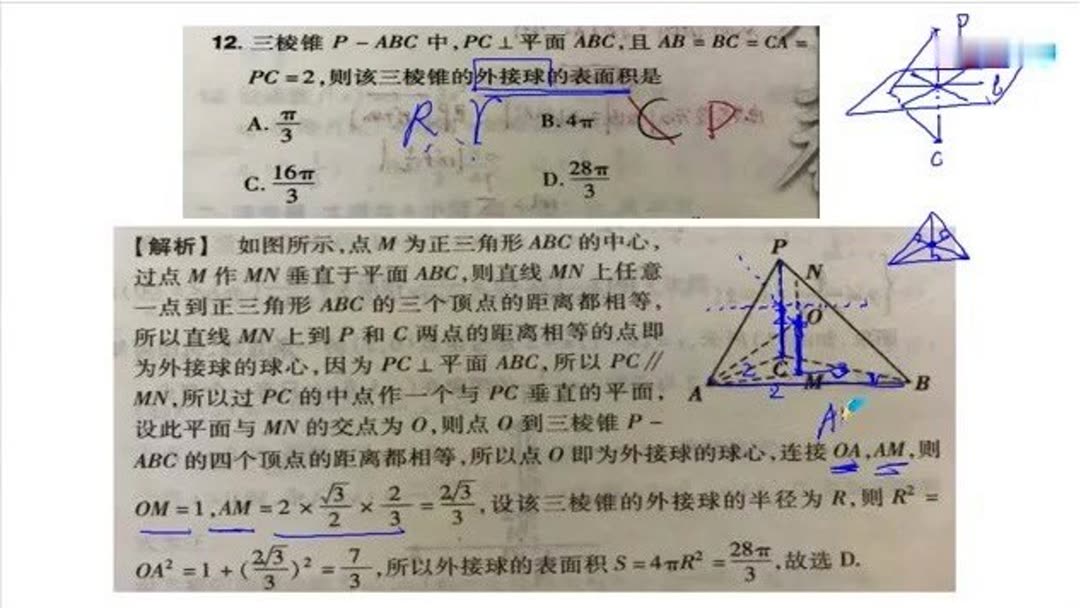 12. 三棱锥 P－ABC 中,PC⊥平面 ABC,且 AB＝BC＝CA＝
PC＝2,则该三棱锥的外接球的表面积是
A. π/3
B. 4π
C. 16π/3
D. 28π/3
R
r
C
D
【解析】 如图所示,点 M 为正三角形 ABC 的中心,
过点 M 作 MN 垂直于平面 ABC,则直线 MN 上任意
一点到正三角形 ABC 的三个顶点的距离都相等,
所以直线 MN 上到 P 和 C 两点的距离相等的点即
为外接球的球心,因为 PC⊥平面 ABC,所以 PC∥
MN,所以过 PC 的中点作一个与 PC 垂直的平面,
设此平面与 MN 的交点为 O,则点 O 到三棱锥 P－
ABC 的四个顶点的距离都相等,所以点 O 即为外接球的球心,连接 OA,AM,则
OM＝1,AM＝2×√3/2×2/3＝2√3/3,设该三棱锥的外接球的半径为 R,则 R²＝
OA²＝1＋(2√3/3)²＝7/3,所以外接球的表面积 S＝4πR²＝28π/3,故选 D.
P
N
O
C
M
A
B
2
2
P
C